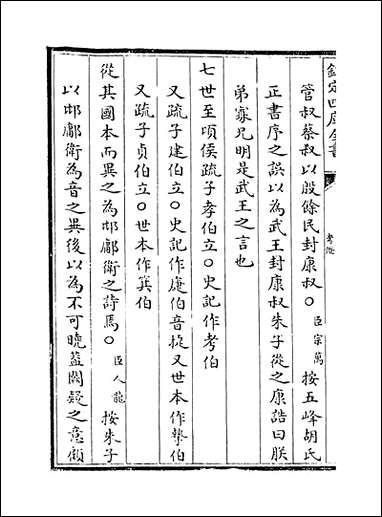 欽定四庫全書
考證
管叔蔡叔以殷餘民封康叔○臣宗萬按五峰胡氏
正書序之誤以為武王封康叔朱子從之康誥曰朕
弟寡兄明是武王之言也
七世至頃侯疏子孝伯立○史記作考伯
又疏子建伯立○史記作庱伯音捷又世本作摯伯
又疏子貞伯立○世本作箕伯
從其國本而異之為邶鄘衛之詩焉○臣人龍按朱子
以邶鄘衛為音之異後以為不可曉蓋闕疑之意顧